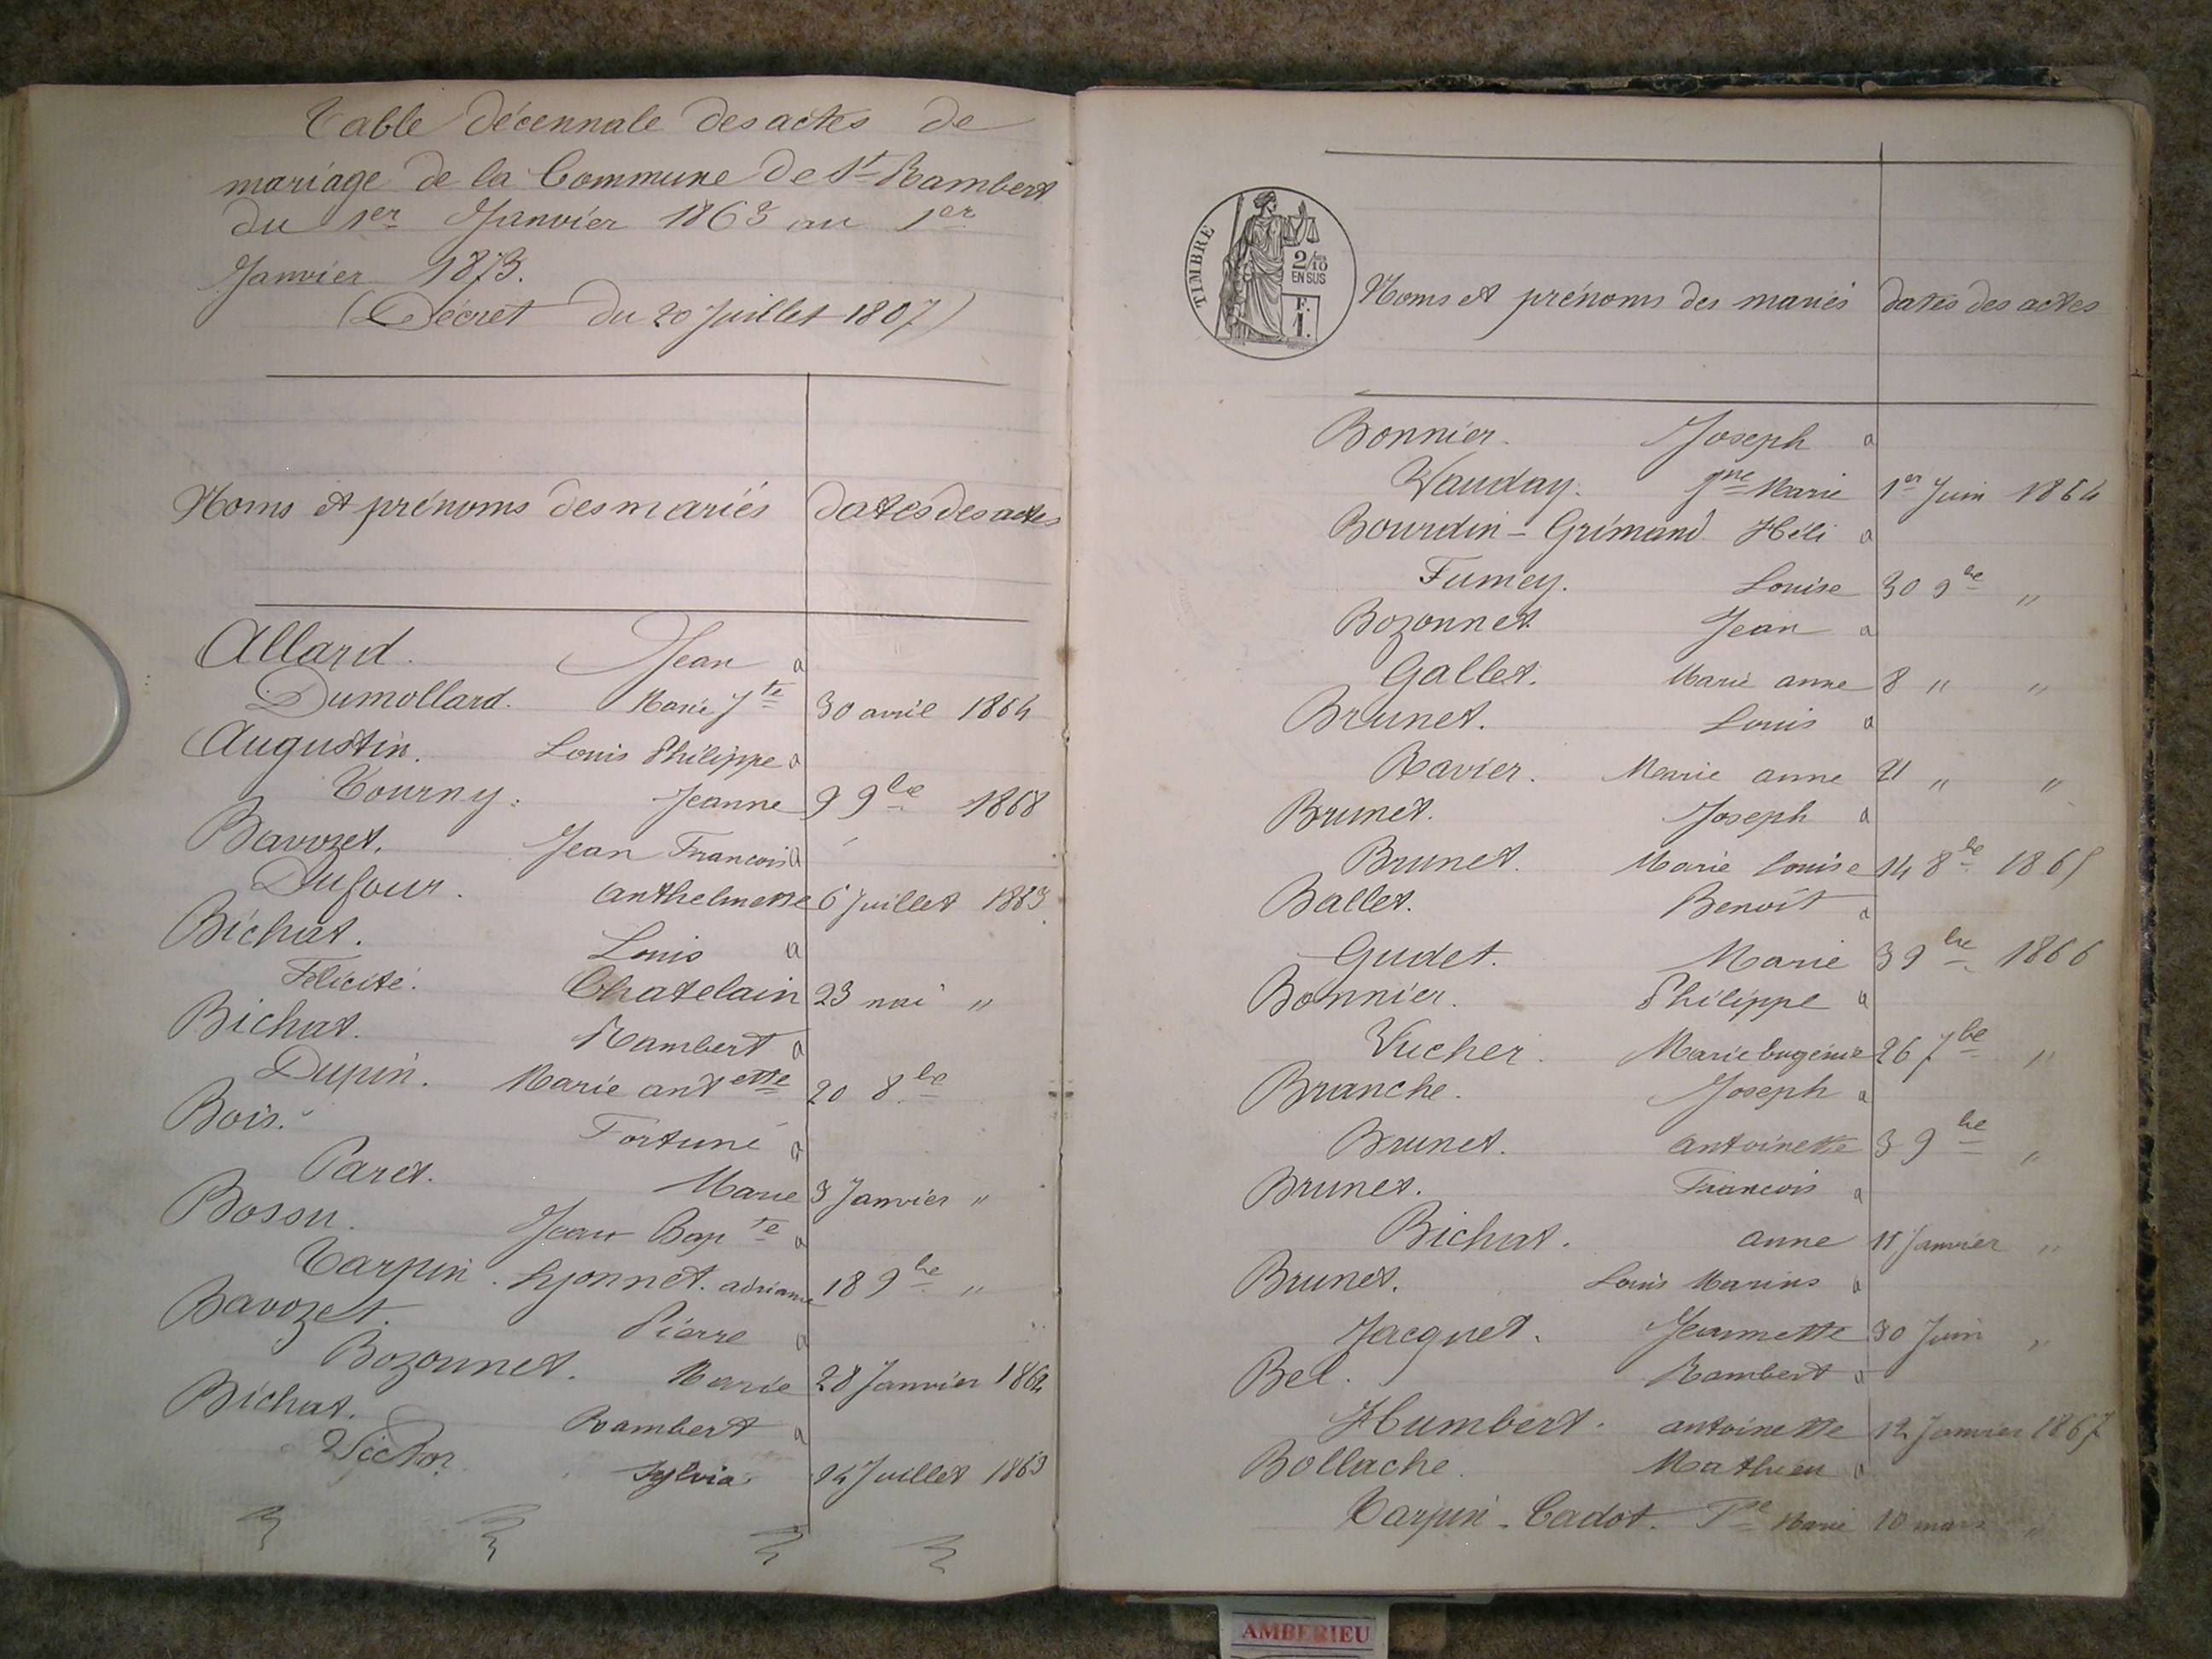 Table décennale des actes de
mariage de la Commune de St Rambert
du 1er Janvier 1863 au 1er
Janvier 1873.
(Décret du 20 Juillet 1807)
Noms et prénoms des mariés dates des actes
Allard. Jean a
Dumollard. Marie Jte 30 avril 1864
Augustin. Louis Philippe a
Tourny. Jeanne 9 9bre 1868
Bavozet. Jean François a
Dufour. anthelmette 6 Juillet 1863
Bichat. Louis a
Félicité. Chatelain 23 mai "
Bichat. Rambert a
Dupin. Marie antette 20 8bre
Bois. Fortuné a
Paret. Marie 3 Janvier "
Bosson. Jean Bapte a
Tarpin. Lyonnet. adrianne 18 9bre "
Bavozet. Pierre a
Bozonnet. Marie 28 Janvier 1864
Bichat. Rambert a
Victor Sylvia 14 Juillet 1863
TIMBRE
2/10
EN SUS
F.
1.
Noms et prénoms des mariés dates des actes
Bonnier. Joseph a
Vauday. Jne Marie 1er Juin 1864
Bourdin - Grimand Héli a
Fumey. Louise 30 9bre "
Bozonnet Jean a
Gallet. Marie anne 8 " "
Brunet. Louis a
Ravier. Marie anne 21 " "
Brunet. Joseph a
Brunet. Marie Louise 14 8bre 1865
Ballet. Benoît a
Gudet. Marie 3 9bre 1866
Bonnier. Philippe a
Vucher. Marie Eugénie 26 7bre "
Branche. Joseph a
Brunet. antoinette 3 9bre "
Brunet. François a
Bichat. anne 11 Janvier "
Brunet. Louis Marius a
Jacquet. Jeannette 30 Juin "
Bel. Rambert a
Humbert. antoinette 12 Janvier 1867
Bollache. Mathieu a
Tarpin - Cadot. Marie 10 mars "
AMBERIEU